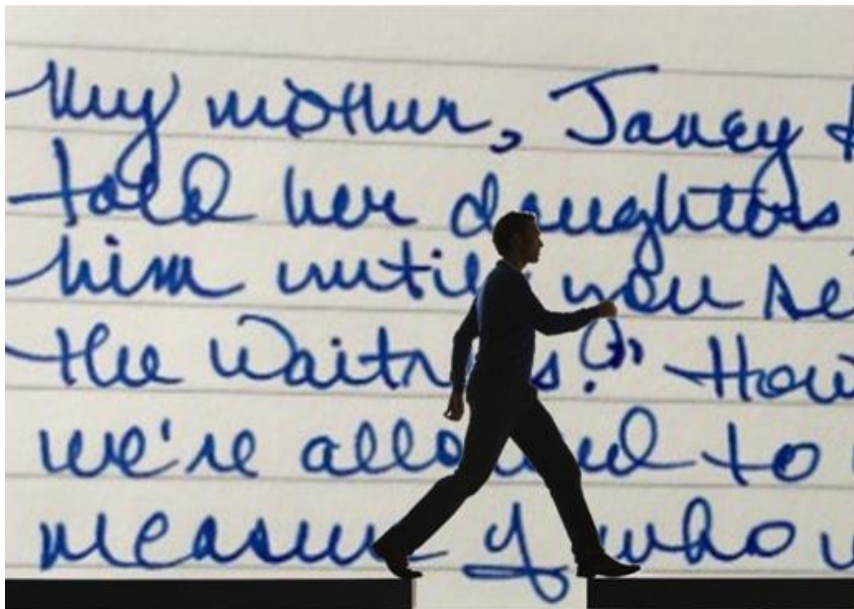 My mother, Janey
told her daughters
him until you se
the waitress." How
we're allowed to
measure of who